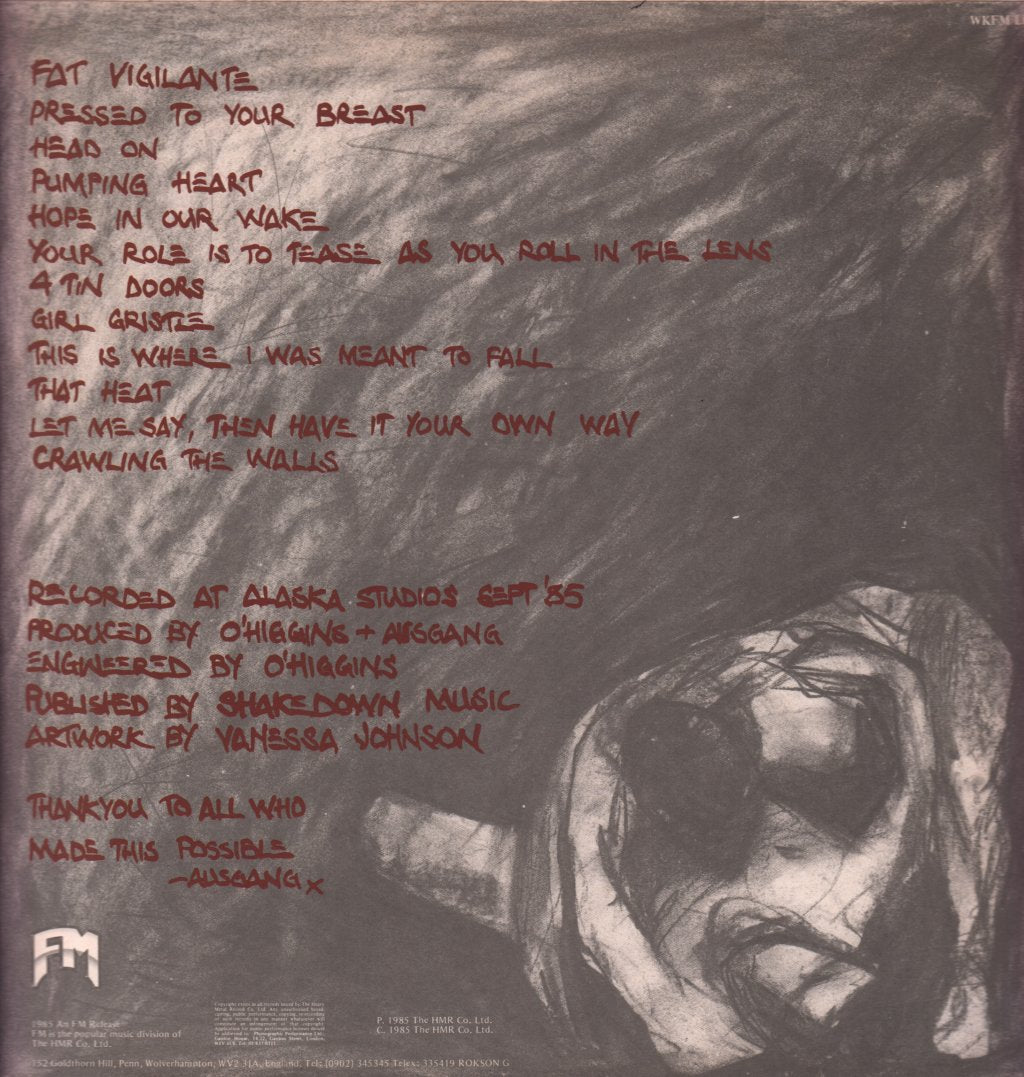 WKFM L
FAT VIGILANTE
PRESSED TO YOUR BREAST
HEAD ON
PUMPING HEART
HOPE IN OUR WAKE
YOUR ROLE IS TO TEASE AS YOU ROLL IN THE LENS
4 TIN DOORS
GIRL GRISTLE
THIS IS WHERE I WAS MEANT TO FALL
THAT HEAT
LET ME SAY, THEN HAVE IT YOUR OWN WAY
CRAWLING THE WALLS
RECORDED AT ALASKA STUDIOS SEPT '85
PRODUCED BY O'HIGGINS + AUSGANG
ENGINEERED BY O'HIGGINS
PUBLISHED BY SHAKEDOWN MUSIC
ARTWORK BY VANESSA JOHNSON
THANKYOU TO ALL WHO
MADE THIS POSSIBLE
-AUSGANG x
FM
1985 An FM Release
FM is the popular music division of
The HMR Co. Ltd.
Copyright exists in all records issued by The Heavy
Metal Record Co. Ltd. Any unauthorised broad-
casting, public performance, copying, rerecording
P. 1985 The HMR Co. Ltd.
C. 1985 The HMR Co. Ltd.
152 Goldthorn Hill, Penn, Wolverhampton, WV2 3JA, England. Tel: (0902) 345345 Telex: 335419 ROKSON G